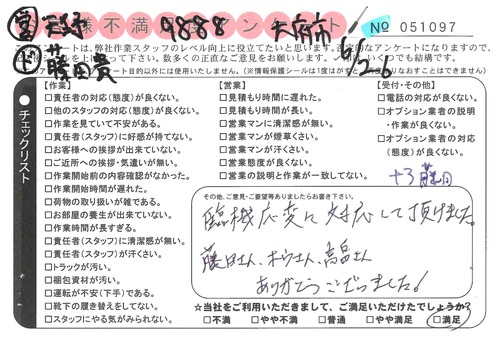 営 天野 9888 大府市 6/2-6
様不満 アンケート № 051097
作 藤田貴
アンケートは、弊社作業スタッフのレベル向上に役立てたいと思います。
【作業】
□責任者の対応（態度）が良くない。
□他のスタッフの対応（態度）が良くない。
□作業を見ていて不安がある。
□責任者（スタッフ）に好感が持てない。
□お客様への挨拶が出来ていない。
□ご近所への挨拶・気遣いが無い。
□作業開始前の内容確認がなかった。
□作業開始時間が遅れた。
□荷物の取り扱いが雑である。
□お部屋の養生が出来ていない。
□作業時間が長すぎる。
□責任者（スタッフ）に清潔感が無い。
□責任者（スタッフ）が汗くさい。
□トラックが汚い。
□梱包資材が汚い。
□運転が安心（下手）である。
□靴下の履き替えをしてない。
□スタッフにやる気がみられない。
【営業】
□見積もり時間に遅れた。
□見積もり時間が長い。
□営業マンに清潔感が無い。
□営業マンが煙草くさい。
□営業マンが汗くさい。
□営業態度が良くない。
□営業の説明と作業が一致してない。
【受付・その他】
□電話の対応が良くない。
□オプション業者の説明
作業が良くない。
□オプション業者の対応
（態度）が良くない。
チェックリスト
その他、ご意見・ご要望等ありましたらお書き下さい。
臨機応変に対応して頂けました。
藤田さん、ホウさん、高畠さん
ありがとうございました！
☆当社をご利用いただきまして、ご満足いただけたでしょうか？
□不満 □やや不満 □普通 □やや満足 □満足